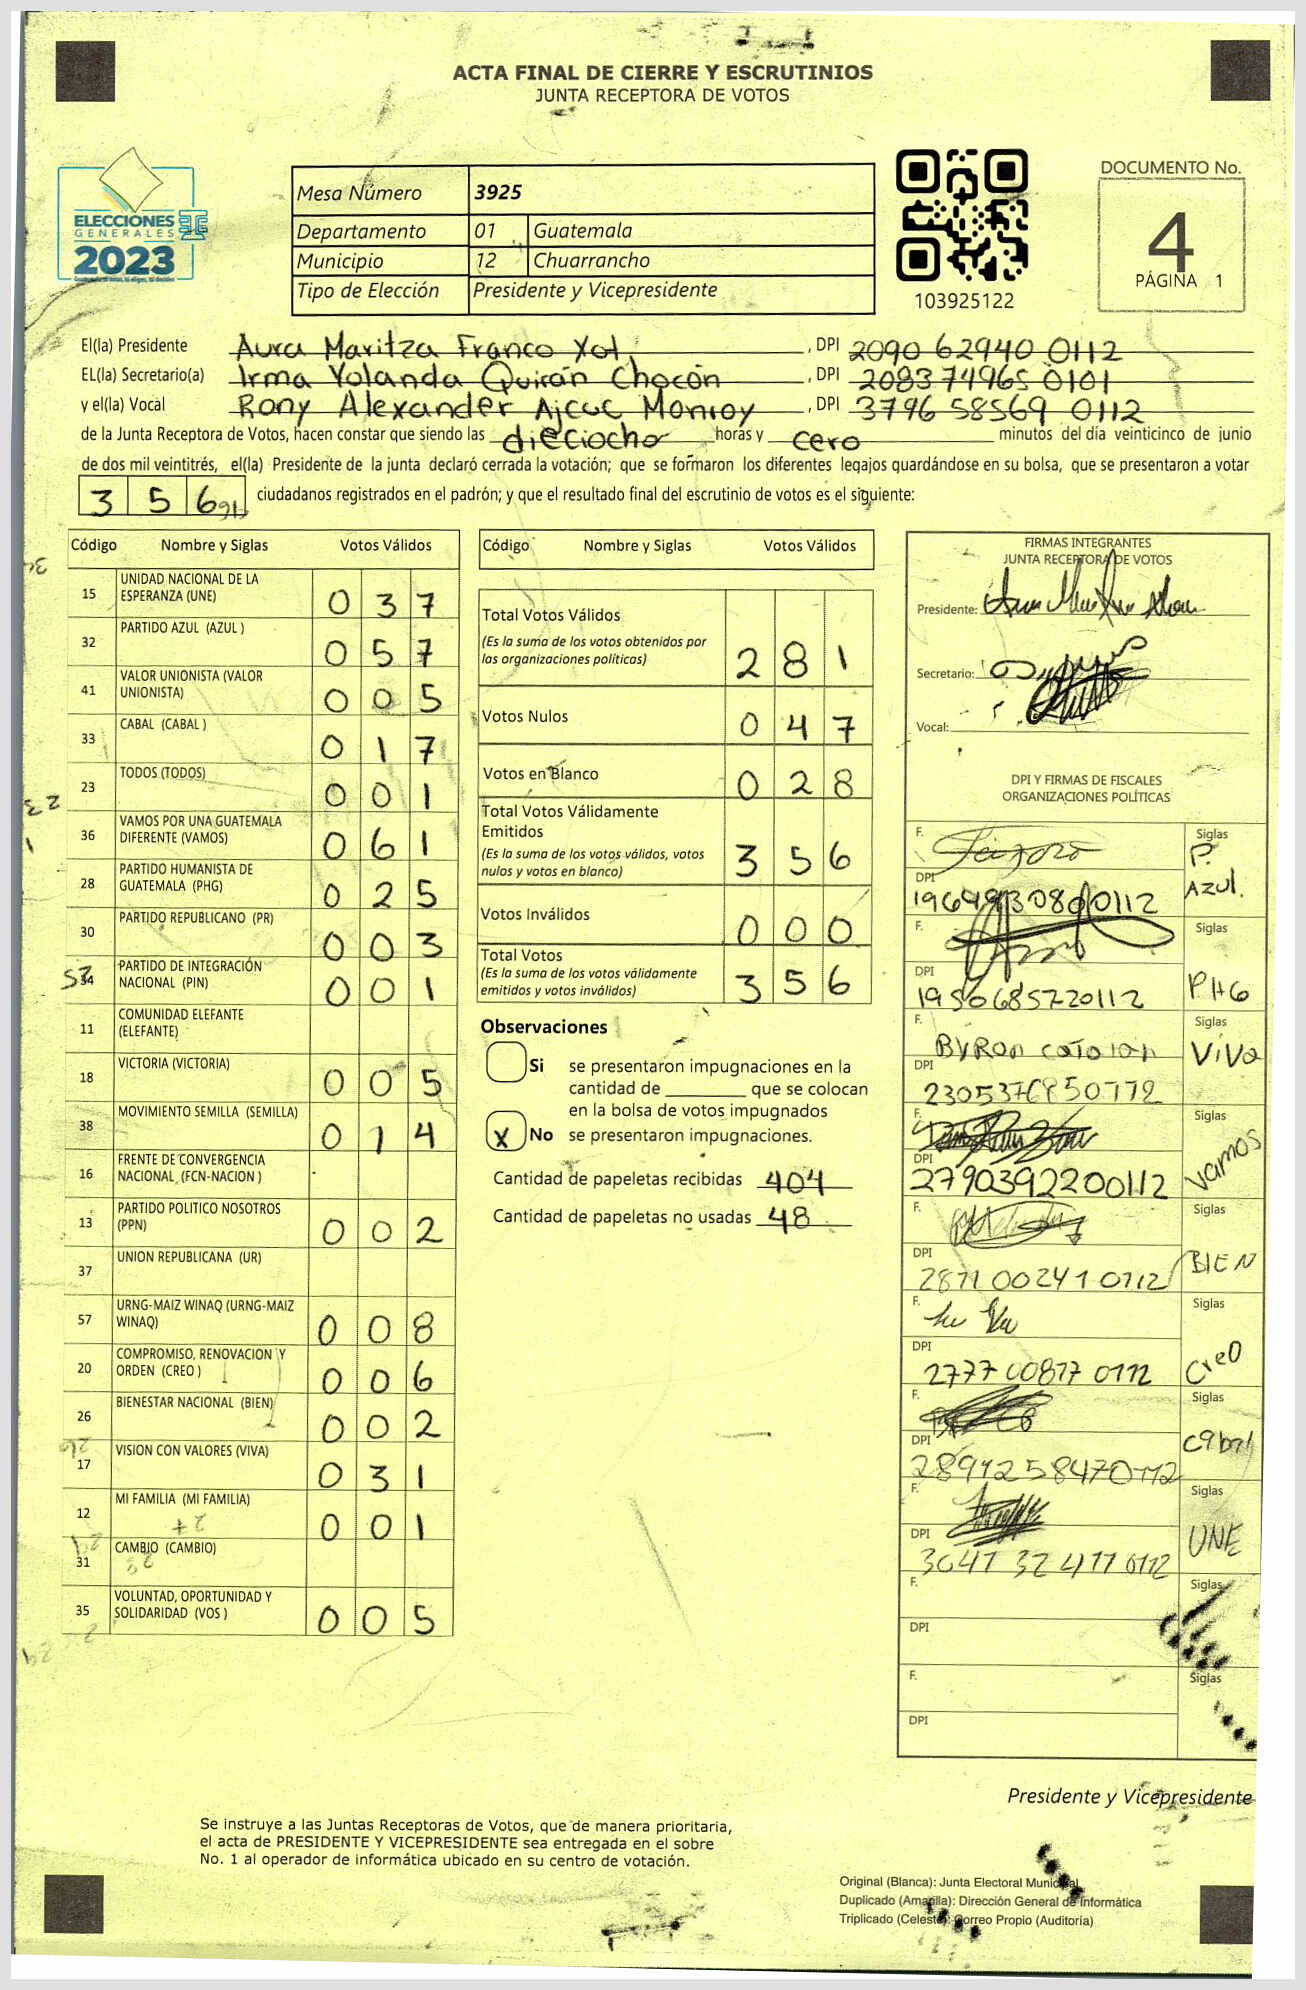 ACTA FINAL DE CIERRE Y ESCRUTINIOS
JUNTA RECEPTORA DE VOTOS
ELECCIONES
GENERALES
2023
Mesa Número 3925
Departamento 01 Guatemala
Municipio 12 Chuarrancho
Tipo de Elección Presidente y Vicepresidente
103925122
DOCUMENTO No.
4
PÁGINA 1
El(la) Presidente Aura Maritza Franco Xot, , DPI 2090 62940 0112
EL(la) Secretario(a) Irma Yolanda Quirán Chocón , DPI 2083 74965 0101
y el(la) Vocal Rony Alexander Ajcuc Monroy , DPI 3796 58569 0112
de la Junta Receptora de Votos, hacen constar que siendo las dieciocho horas y cero minutos del día veinticinco de junio
de dos mil veintitrés, el(la) Presidente de la junta declaró cerrada la votación; que se formaron los diferentes legajos guardándose en su bolsa, que se presentaron a votar
356 ciudadanos registrados en el padrón; y que el resultado final del escrutinio de votos es el siguiente:
Código Nombre y Siglas Votos Válidos
15 UNIDAD NACIONAL DE LA ESPERANZA (UNE) 037
32 PARTIDO AZUL (AZUL ) 057
41 VALOR UNIONISTA (VALOR UNIONISTA) 005
33 CABAL (CABAL ) 017
23 TODOS (TODOS) 001
36 VAMOS POR UNA GUATEMALA DIFERENTE (VAMOS) 061
28 PARTIDO HUMANISTA DE GUATEMALA (PHG) 025
30 PARTIDO REPUBLICANO (PR) 003
34 PARTIDO DE INTEGRACIÓN NACIONAL (PIN) 001
11 COMUNIDAD ELEFANTE (ELEFANTE)
18 VICTORIA (VICTORIA) 005
38 MOVIMIENTO SEMILLA (SEMILLA) 014
16 FRENTE DE CONVERGENCIA NACIONAL (FCN-NACION )
13 PARTIDO POLITICO NOSOTROS (PPN) 002
37 UNION REPUBLICANA (UR)
57 URNG-MAIZ WINAQ (URNG-MAIZ WINAQ) 008
20 COMPROMISO, RENOVACION Y ORDEN (CREO ) 006
26 BIENESTAR NACIONAL (BIEN) 002
17 VISION CON VALORES (VIVA) 031
12 MI FAMILIA (MI FAMILIA) 001
31 CAMBIO (CAMBIO)
35 VOLUNTAD, OPORTUNIDAD Y SOLIDARIDAD (VOS ) 005
Código Nombre y Siglas Votos Válidos
Total Votos Válidos
(Es la suma de los votos obtenidos por
las organizaciones políticas) 281
Votos Nulos 047
Votos en Blanco 028
Total Votos Válidamente
Emitidos
(Es la suma de los votos válidos, votos
nulos y votos en blanco) 356
Votos Inválidos 000
Total Votos
(Es la suma de los votos válidamente
emitidos y votos inválidos) 356
Observaciones
Si se presentaron impugnaciones en la
cantidad de que se colocan
en la bolsa de votos impugnados
X No se presentaron impugnaciones.
Cantidad de papeletas recibidas 404
Cantidad de papeletas no usadas 48
FIRMAS INTEGRANTES
JUNTA RECEPTORA DE VOTOS
Presidente:
Secretario:
Vocal:
DPI Y FIRMAS DE FISCALES
ORGANIZACIONES POLÍTICAS
F. Siglas P. Azul.
DPI
F. Siglas PHG
DPI 1950685720112
F. BYRON Siglas VIVA
DPI
F. Siglas Vamos
DPI 2790392200112
F. Siglas BIEN
DPI 2871 00241 0112
F. Siglas CreO
DPI 2777 00877 0112
F. Siglas Cabal
DPI
F. Siglas UNE
DPI
F. Siglas
DPI
F. Siglas
DPI
Presidente y Vicepresidente
Se instruye a las Juntas Receptoras de Votos, que de manera prioritaria,
el acta de PRESIDENTE Y VICEPRESIDENTE sea entregada en el sobre
No. 1 al operador de informática ubicado en su centro de votación.
Original (Blanca): Junta Electoral Municipal
Duplicado (Amarilla): Dirección General de Informática
Triplicado (Celeste): Correo Propio (Auditoría)